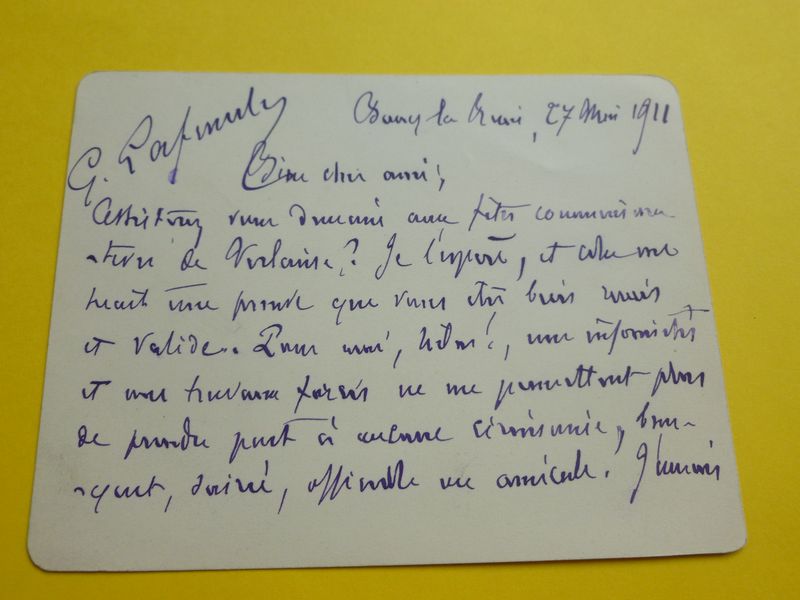 G. Lafenestre
Bourg la Reine, 27 Mai 1911
Bien cher ami,
Assisterez vous demain aux fêtes commémora-
-tives de Verlaine? Je l'espère, et cela me
serait une preuve que vous êtes bien remis
et valide. Pour moi, hélas!, mes infirmités
et mes travaux forcés ne me permettent plus
de prendre part à aucune cérémonie, ban-
-quet, soirée, officielle ou amicale. J'aurais